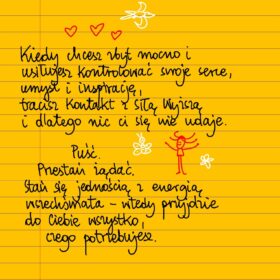 Kiedy chcesz zbyt mocno i
usiłujesz kontrolować swoje serce,
umysł i inspirację,
tracisz kontakt z siłą wyższą
i dlatego nic ci się nie udaje.
Puść.
Przestań żądać.
Stań się jednością z energią
wszechświata – wtedy przyjdzie
do Ciebie wszystko,
czego potrzebujesz.